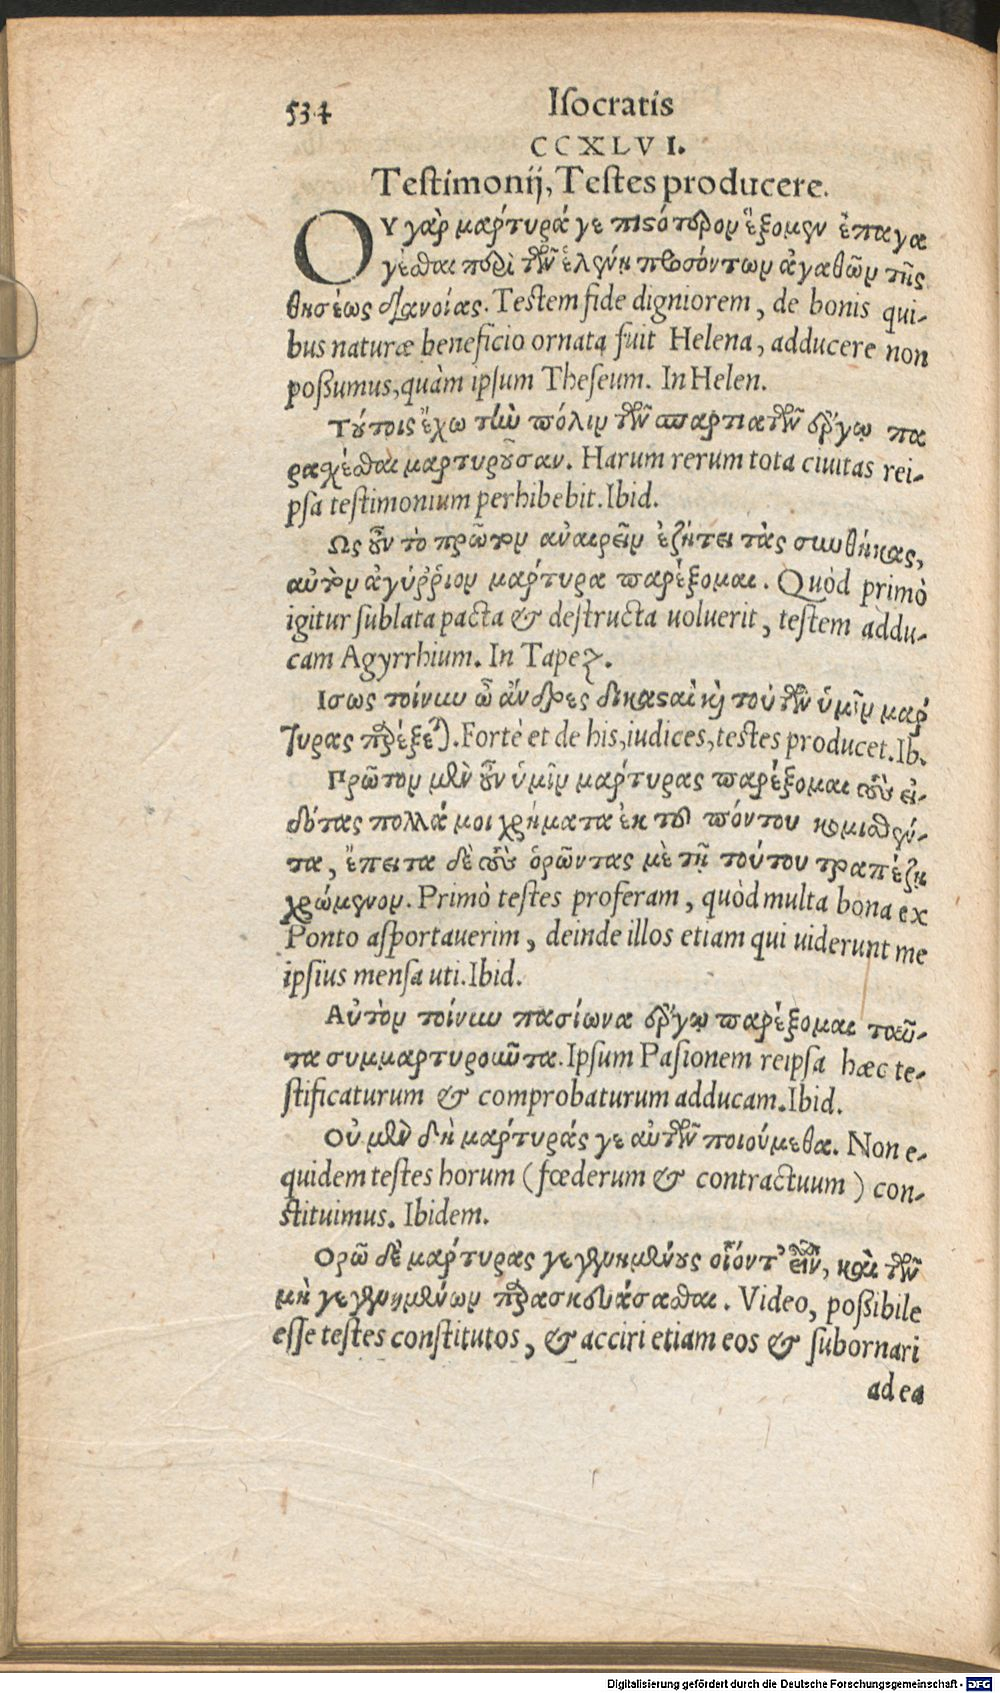 534 Isocratis
CCXLVI.
Testimonij, Testes producere.
ΟΥ γὰρ μαρτυρά γε πιστότερον ἕξομεν ἐπαγα
γέσθαι περὶ τῶν ἑλένῃ προσόντων ἀγαθῶν τῆς
θησέως διανοίας. Testem fide digniorem, de bonis qui-
bus naturæ beneficio ornata fuit Helena, adducere non
possumus, quàm ipsum Theseum. In Helen.
Τούτοις ἔχω τὴν πόλιν τῶν σπαρτιατῶν ἔργῳ πα
ρασχέσθαι μαρτυροῦσαν. Harum rerum tota ciuitas rei-
psa testimonium perhibebit. Ibid.
Ως οὖν τὸ πρῶτον ἀναιρεῖν ἐζήτει τὰς συνθήκας,
αὐτὸν ἀγύῤῥιον μάρτυρα παρέξομαι. Quòd primò
igitur sublata pacta & destructa uoluerit, testem addu-
cam Agyrrhium. In Tapez.
Ισως τοίνυν ὦ ἄνδρες δικασταὶ καὶ τούτων ὑμῖν μάρ
τυρας παρέξεται. Fortè et de his, iudices, testes producet. Ib.
Πρῶτον μὲν οὖν ὑμῖν μάρτυρας παρέξομαι τοὺς εἰ-
δότας πολλά μοι χρήματα ἐκ τοῦ πόντου κομισθέν-
τα, ἔπειτα δὲ τοὺς ὁρῶντας μὲ τῇ τούτου τραπέζῃ
χρώμενον. Primò testes proferam, quòd multa bona ex
Ponto asportauerim, deinde illos etiam qui uiderunt me
ipsius mensa uti. Ibid.
Αὐτὸν τοίνυν πασίωνα ἔργῳ παρέξομαι ταῦ-
τα συμμαρτυροῦντα. Ipsum Pasionem reipsa hæc te-
stificaturum & comprobaturum adducam. Ibid.
Οὐ μὲν δὴ μάρτυράς γε αὐτῶν ποιούμεθα. Non e-
quidem testes horum (fœderum & contractuum) con-
stituimus. Ibidem.
Ορῶ δὲ μάρτυρας γεγενημένους οἷόντ' εἶναι, καὶ τῶν
μὴ γεγενημένων παρασκευάσασθαι. Video, possibile
esse testes constitutos, & acciri etiam eos & subornari
ad ea
Digitalisierung gefördert durch die Deutsche Forschungsgemeinschaft - DFG